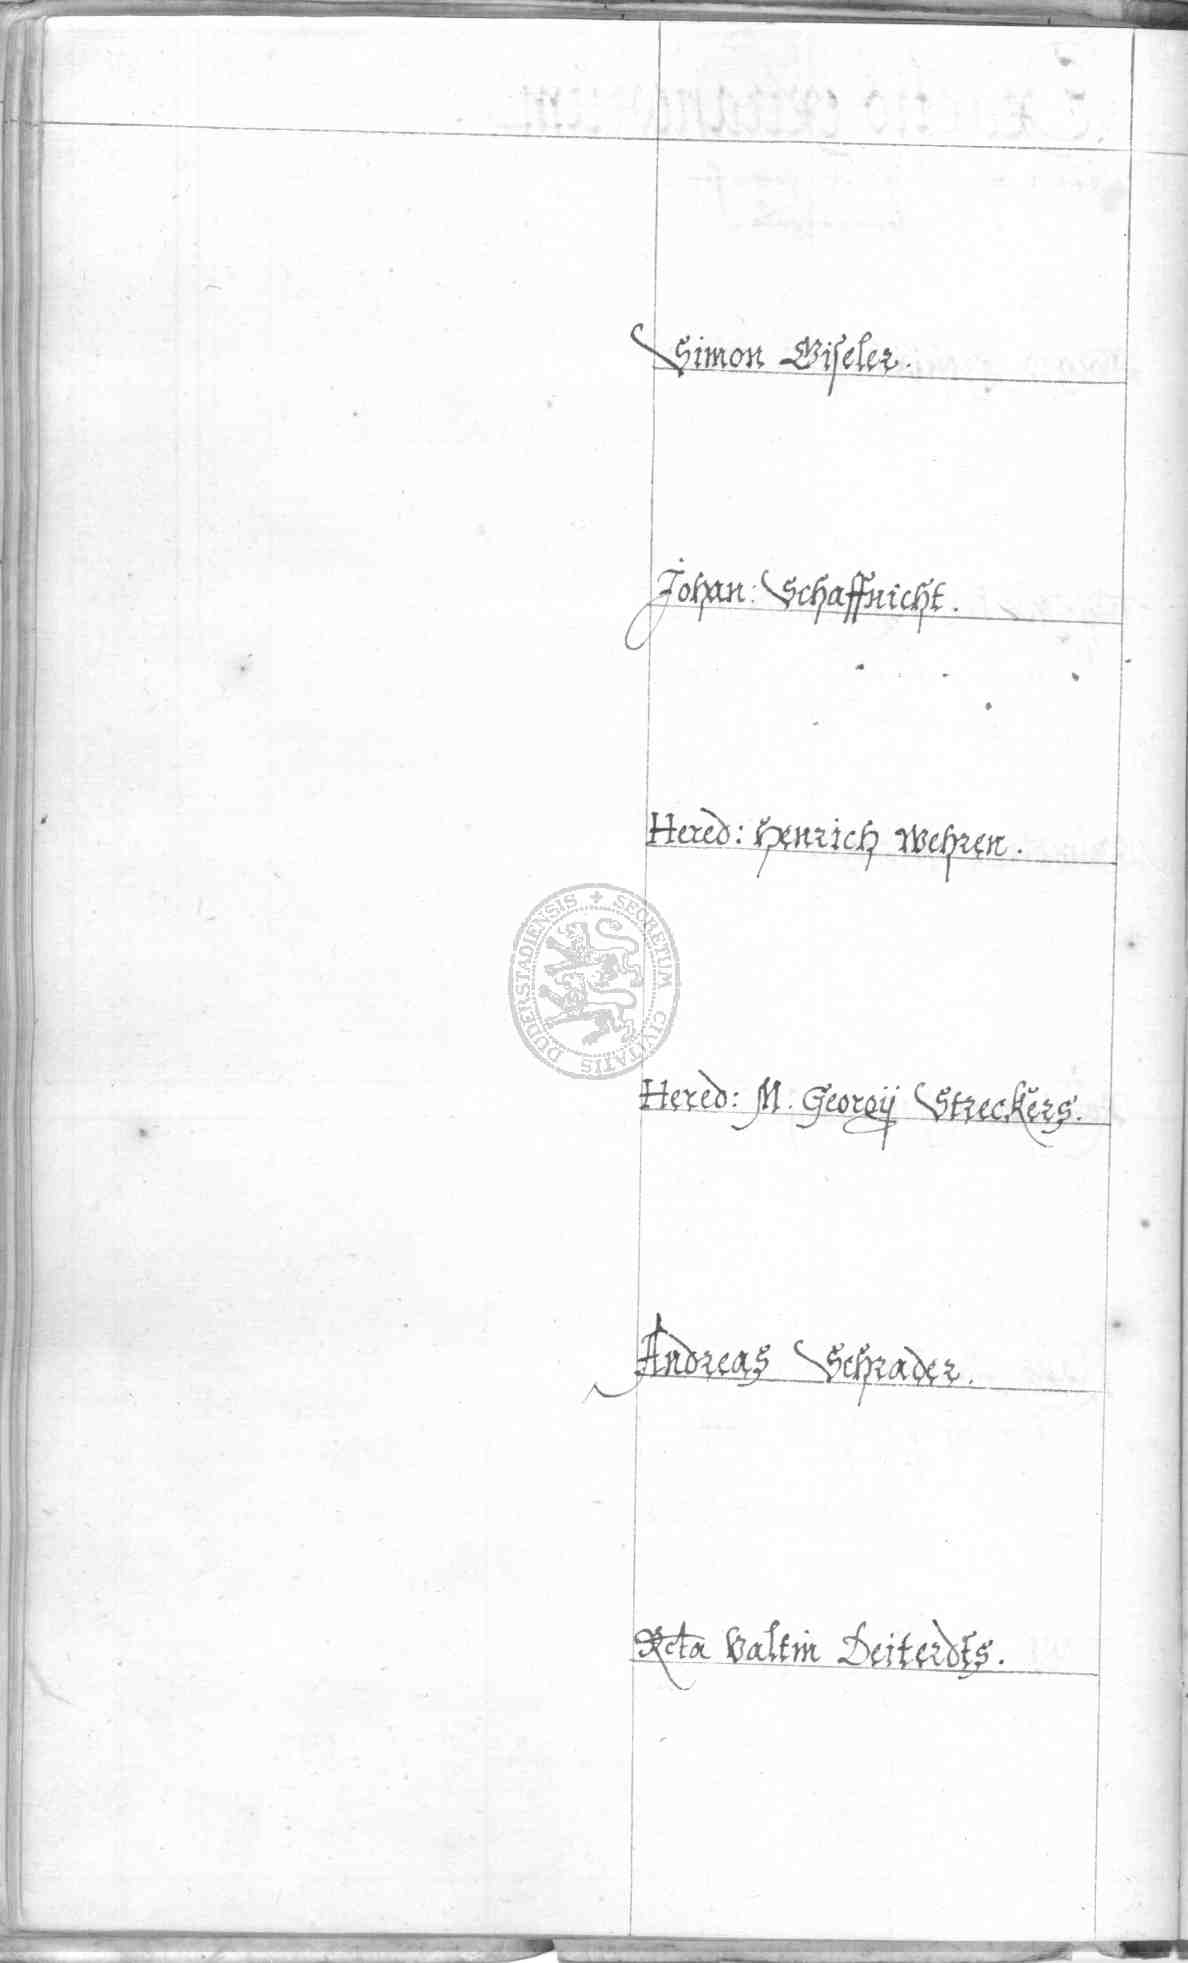 Simon Giseler.
Johan: Schaffnicht.
Hered: Henrich Wehren.
SECRETUM CIVITATIS DUDERSTADIENSIS
Hered: M. Georgij Streckers.
Andreas Schrader.
Rcta Valtin Deiterdts.